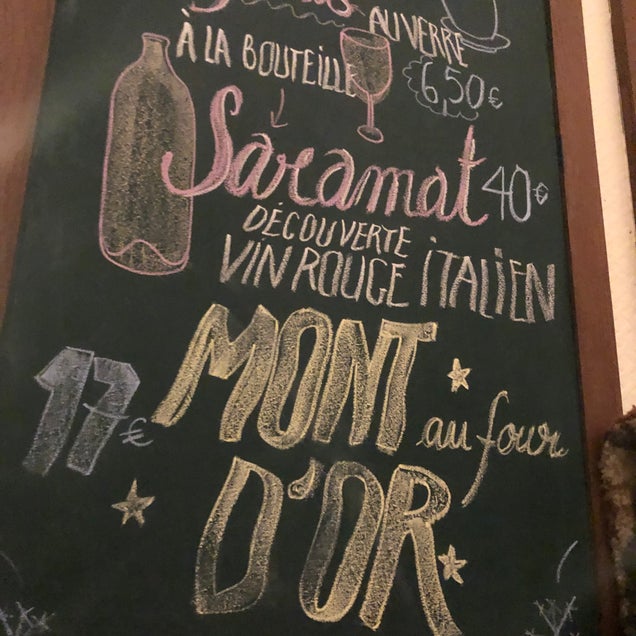 AU VERRE
À LA BOUTEILLE
6,50€
Saramat 40€
DÉCOUVERTE
VIN ROUGE ITALIEN
MONT
17€
au four
D'OR